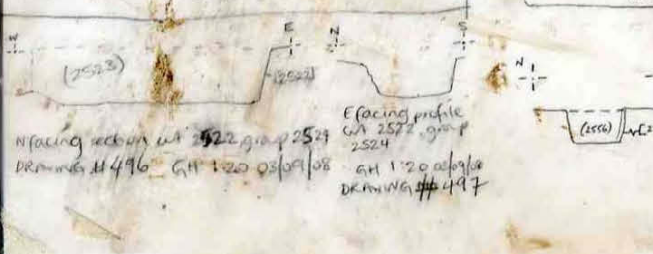 W E
(2523)
(2522)
N facing section cut 2522, group 2529
DRAWING # 496 GH 1:20 03/09/08
N S
E facing profile
cut 2522, group
2524
GH 1:20 03/09/08
DRAWING # 497
N
(2556)